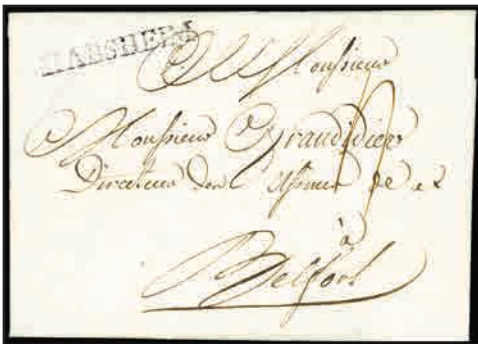 HABSHEIM
A Monsieur
Monsieur Grandidier
Directeur des
à
Belfort